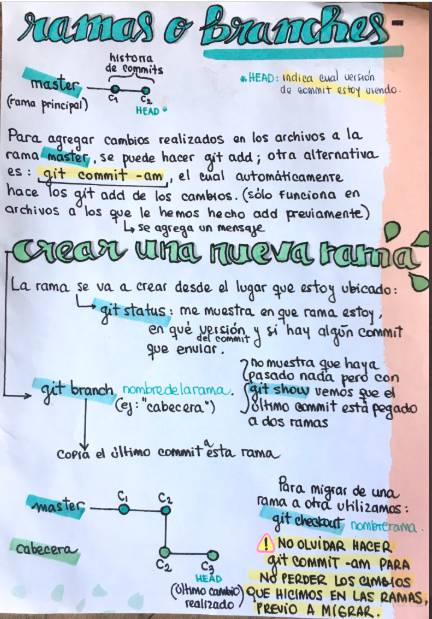 ramas o branches -
historia
de commits
master
(rama principal)
C1 C2
HEAD
* HEAD: indica cual versión
de commit estoy viendo.
Para agregar cambios realizados en los archivos a la
rama master, se puede hacer git add; otra alternativa
es: git commit -am, el cuál automáticamente
hace los git add de los cambios. (sólo funciona en
archivos a los que le hemos hecho add previamente)
↳ se agrega un mensaje
crear una nueva rama
La rama se va a crear desde el lugar que estoy ubicado:
git status: me muestra en que rama estoy,
en qué versión del commit y si hay algún commit
que enviar.
git branch nombredelarama.
(ej: "cabecera")
no muestra que haya
pasado nada pero con
git show vemos que el
último commit está pegado
a dos ramas
copia el último commit a esta rama
master C1 C2
cabecera C2 C3
HEAD
(último cambio
realizado)
Para migrar de una
rama a otra utilizamos:
git checkout nombrerama.
! NO OLVIDAR HACER
git commit -am PARA
NO PERDER LOS CAMBIOS
QUE HICIMOS EN LAS RAMAS,
PREVIO A MIGRAR.